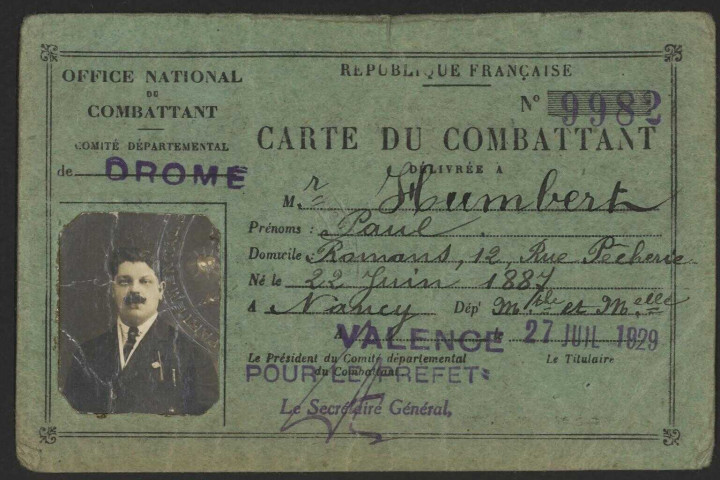 OFFICE NATIONAL
DU
COMBATTANT
COMITÉ DÉPARTEMENTAL
de DROME
RÉPUBLIQUE FRANÇAISE
N° 9982
CARTE DU COMBATTANT
DÉLIVRÉE A
Mr Humbert
Prénoms : Paul
Domicile : Romans, 12, Rue Pêcherie
Né le 22 Juin 1887
A Nancy Dépt Mthe et Melle
A VALENCE le 27 JUIL 1929
Le Président du Comité départemental
du Combattant
Le Titulaire
POUR LE PREFET:
Le Secrétaire Général,